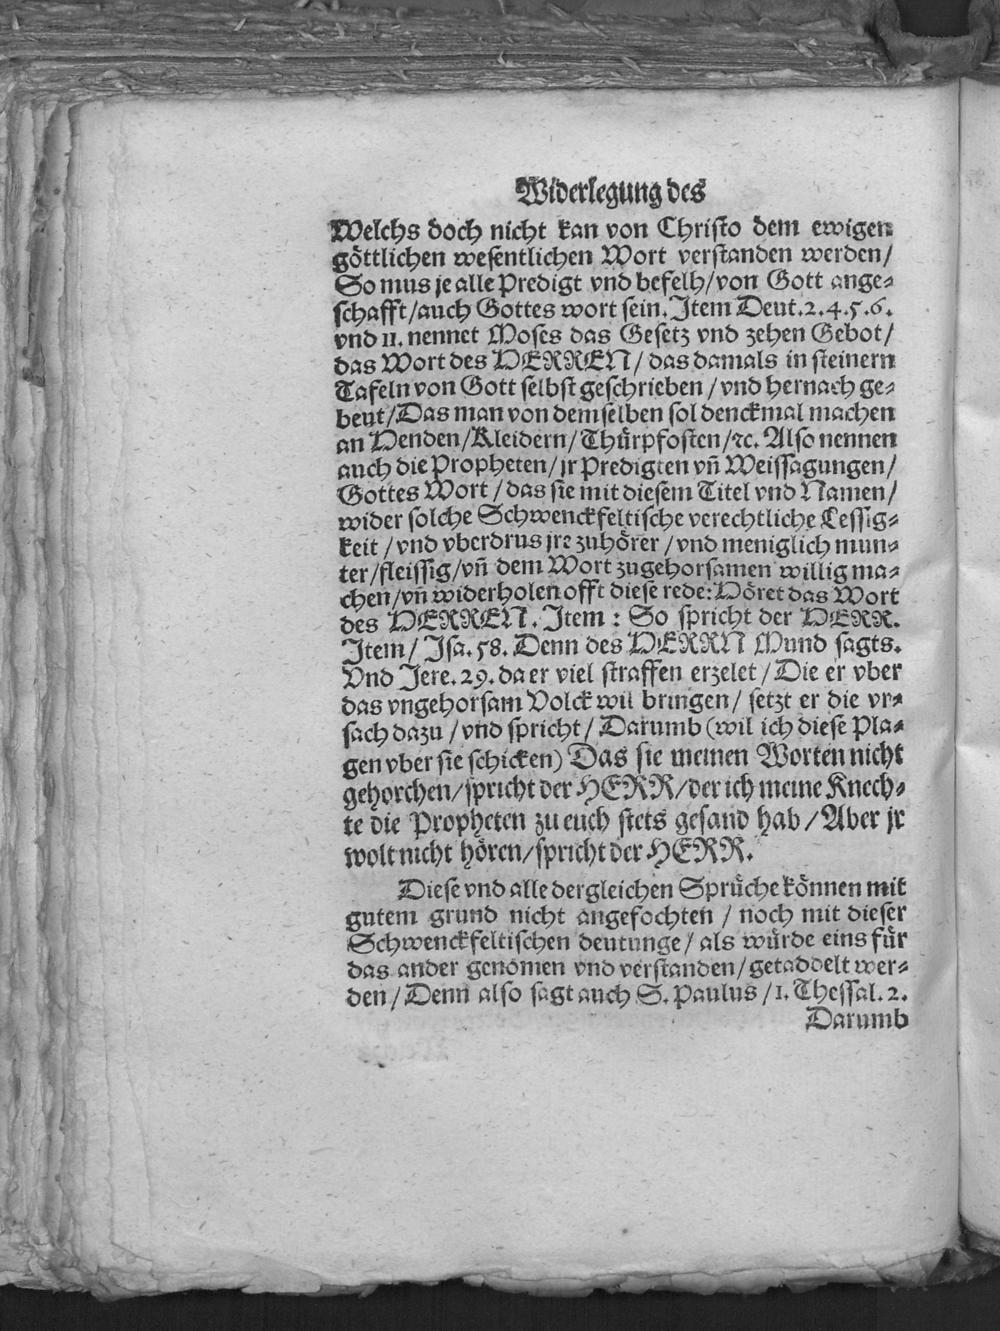 Widerlegung des
Welchs doch nicht kan von Christo dem ewigen
göttlichen wesentlichen Wort verstanden werden/
So mus je alle Predigt vnd befelh/von Gott ange-
schafft/auch Gottes wort sein. Item Deut.2.4.5.6.
vnd 11. nennet Moses das Gesetz vnd zehen Gebot/
das Wort des HERREN/ das damals in steinern
Tafeln von Gott selbst geschrieben/vnd hernach ge-
beut/Das man von demselben sol denckmal machen
an Henden/Kleidern/Thürpfosten/ꝛc. Also nennen
auch die Propheten/jr Predigten vñ Weissagungen/
Gottes Wort/das sie mit diesem Titel vnd Namen/
wider solche Schwenckfeltische verechtliche Lessig-
keit/vnd vberdrus jre zuhörer/vnd meniglich mun-
ter/fleissig/vñ dem Wort zugehorsamen willig ma-
chen/vñ widerholen offt diese rede: Höret das Wort
des HERREN. Item: So spricht der HERR.
Item/ Isa.58. Denn des HERRN Mund sagts.
Vnd Jere.29. da er viel straffen erzelet/Die er vber
das vngehorsam Volck wil bringen/ setzt er die vr-
sach dazu/vnd spricht/ Darumb (wil ich diese Pla-
gen vber sie schicken) Das sie meinen Worten nicht
gehorchen/spricht der HERR/der ich meine Knech-
te die Propheten zu euch stets gesand hab/Aber jr
wolt nicht hören/spricht der HERR.
Diese vnd alle dergleichen Sprüche können mit
gutem grund nicht angefochten/noch mit dieser
Schwenckfeltischen deutunge/ als würde eins für
das ander genomen vnd verstanden/getaddelt wer-
den/Denn also sagt auch S. Paulus/1. Thessal.2.
Darumb